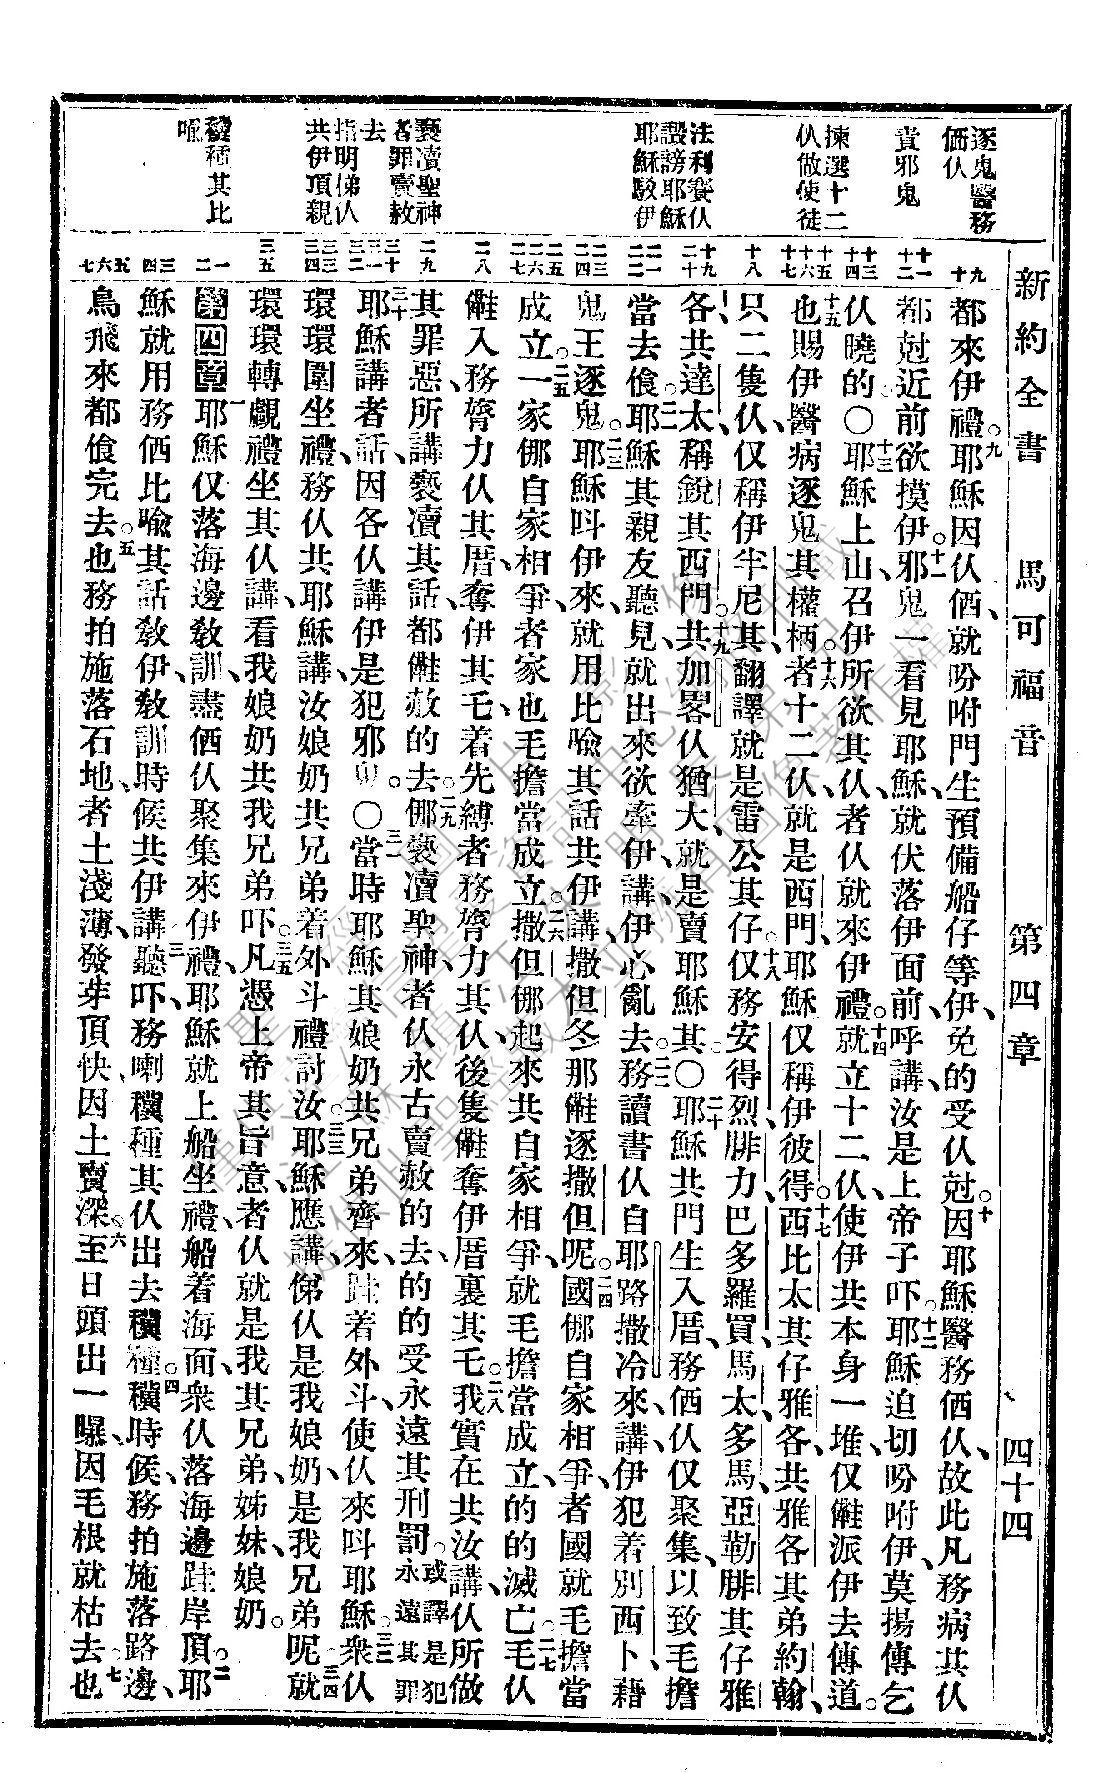 新約全書 馬可福音 第四章 四十四
逐鬼醫務
価仈
責邪鬼
揀選十二
仈做使徒
法利賽仈
毀謗耶穌
耶穌駁伊
褻瀆聖神
者罪賣赦
去
指明俤仈
共伊頂親
種其比
喻
九
十
十一
十二
十三
十四
十五
十六
十七
十八
十九
二十
二一
二二
二三
二四
二五
二六
二七
二八
二九
三十
三一
三二
三三
三四
三五
一
二
三
四
五
六
七
都來伊禮。九耶穌因仈価、就吩咐門生預備船仔等伊、免的受仈尅。十因耶穌醫務価仈、故此凡務病其仈
都尅近前欲摸伊。十一邪鬼一看見耶穌、就伏落伊面前、呼講、汝是上帝子吓。十二耶穌迫切吩咐伊、莫揚傳乞
仈曉的。〇十三耶穌上山、召伊所欲其仈、者仈就來伊禮。十四就立十二仈、使伊共本身一堆、仅儺派伊去傳道。
十五也賜伊醫病逐鬼其權柄。十六者十二仈、就是西門、耶穌仅稱伊彼得。十七西比太其仔雅各、共雅各其弟約翰、
只二隻仈仅稱伊半尼其、翻譯就是雷公其仔。十八仅務安得烈、腓力、巴多羅買、馬太、多馬、亞勒腓其仔雅
各、共達太、稱銳其西門。十九共加畧仈猶大、就是賣耶穌其。〇二十耶穌共門生入厝、務価仈仅聚集、以致毛擔
當去飡。二一耶穌其親友聽見、就出來欲牽伊、講、伊心亂去。二二務讀書仈自耶路撒冷來、講、伊犯着別西卜、藉
鬼王逐鬼。二三耶穌呌伊來、就用比喻其話共伊講、撒但冬那儺逐撒但呢。二四國倻自家相爭、者國就毛擔當
成立。二五一家倻自家相爭、者家也毛擔當成立。二六撒但倻起來共自家相爭、就毛擔當成立、的的滅亡。二七毛仈
儺入務膂力仈其厝、奪伊其乇、着先縛者務膂力其仈、後隻儺奪伊厝裏其乇。二八我實在共汝講、仈所做
其罪惡、所講褻瀆其話、都儺赦的去。二九倻褻瀆聖神者仈、永古賣赦的去、的的受永遠其刑罰。或譯是犯永遠其罪
三十耶穌講者話、因各仈講伊是犯邪鬼。〇三一當時耶穌其娘奶共兄弟齊來、跬着外斗、使仈來呌耶穌。三二衆仈
環環圍坐禮、務仈共耶穌講、汝娘奶共兄弟着外斗禮討汝。三三耶穌應講、俤仈是我娘奶、是我兄弟呢。三四就
環環轉覷禮坐其仈、講、看我娘奶共我兄弟吓。三五凡憑上帝其旨意者仈、就是我其兄弟、姊妹、娘奶。
第四章 一耶穌仅落海邊教訓、盡価仈聚集來伊禮、耶穌就上船坐禮、船着海面、衆仈落海邊跬岸頂。二耶
穌就用務価比喻其話教伊、教訓時候共伊講。三聽吓、務喇種其仈出去種。四時候、務拍施落路邊、
鳥飛來都飡完去。五也務拍施落石地、者土淺薄、發芽頂快、因土賣深。六至日頭出一曝、因毛根就枯去。七也